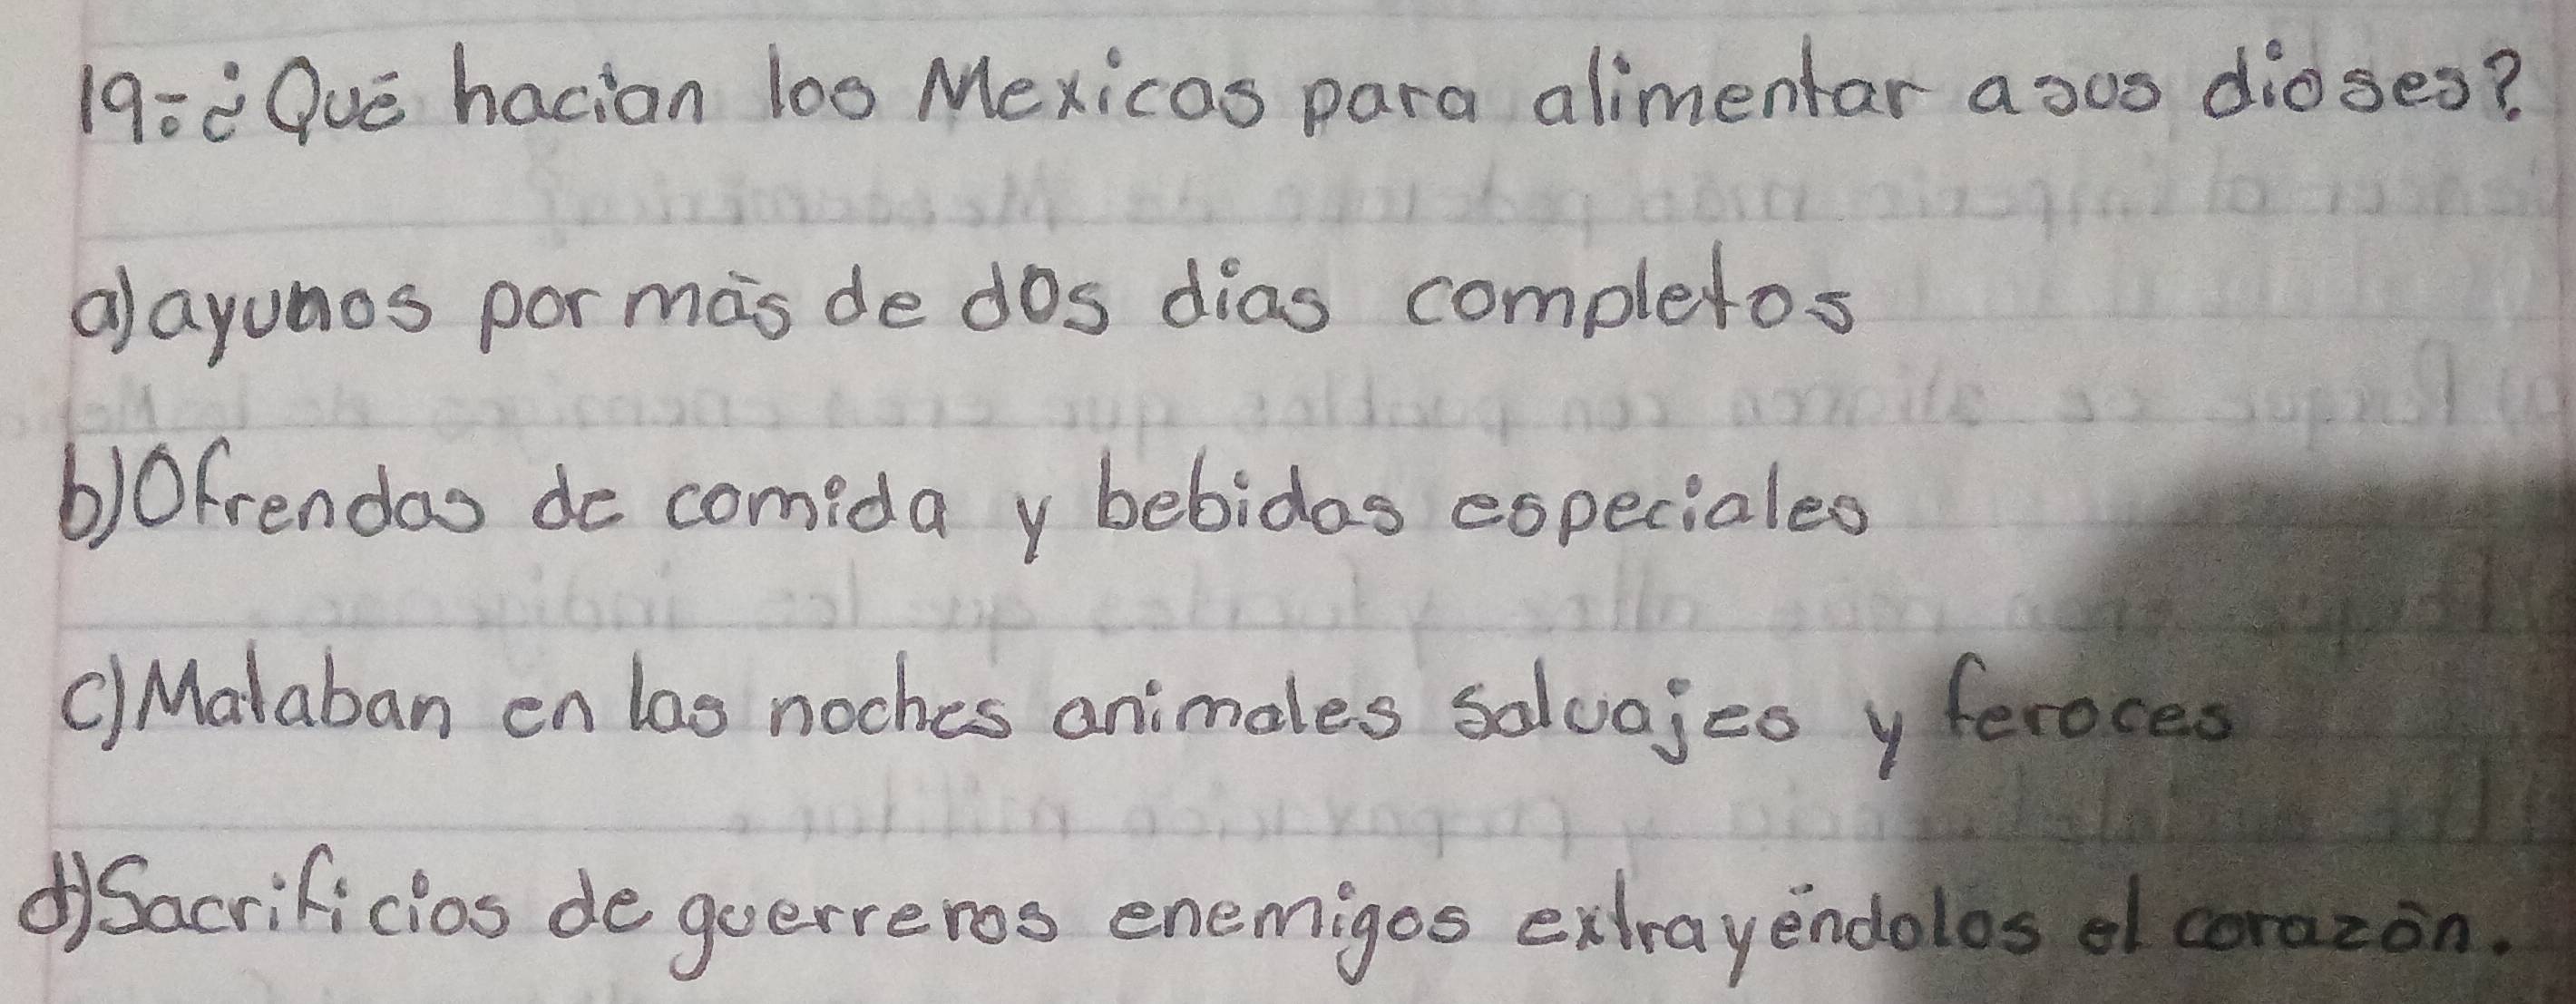 19.- ¿Qué hacían los Mexicas para alimentar a sus dioses?
a) ayunos por más de dos dias completos
b) Ofrendas de comida y bebidas especiales
c) Mataban en las noches animales salvajes y feroces
d) Sacrificios de guerreros enemigos extrayéndolos el corazón.